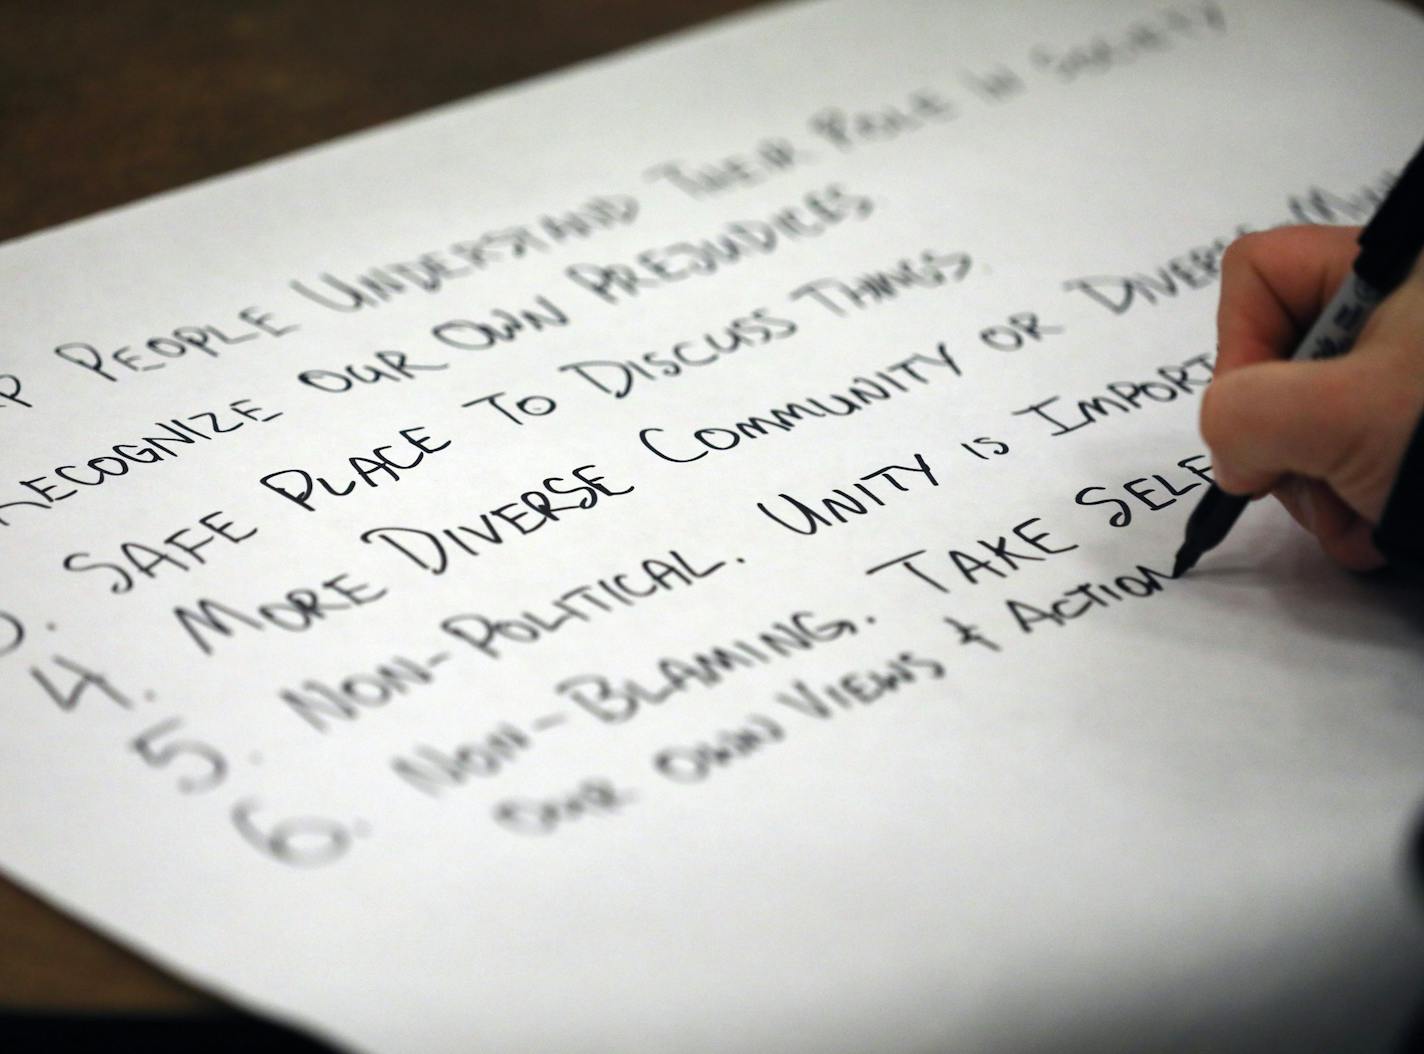 People Understand Their Role in Society
Recognize our Own Prejudices
Safe Place To Discuss Things
4. More Diverse Community or Diverse
5. Non-Political. Unity is Import
6. Non-Blaming. Take Self
our own Views & Action